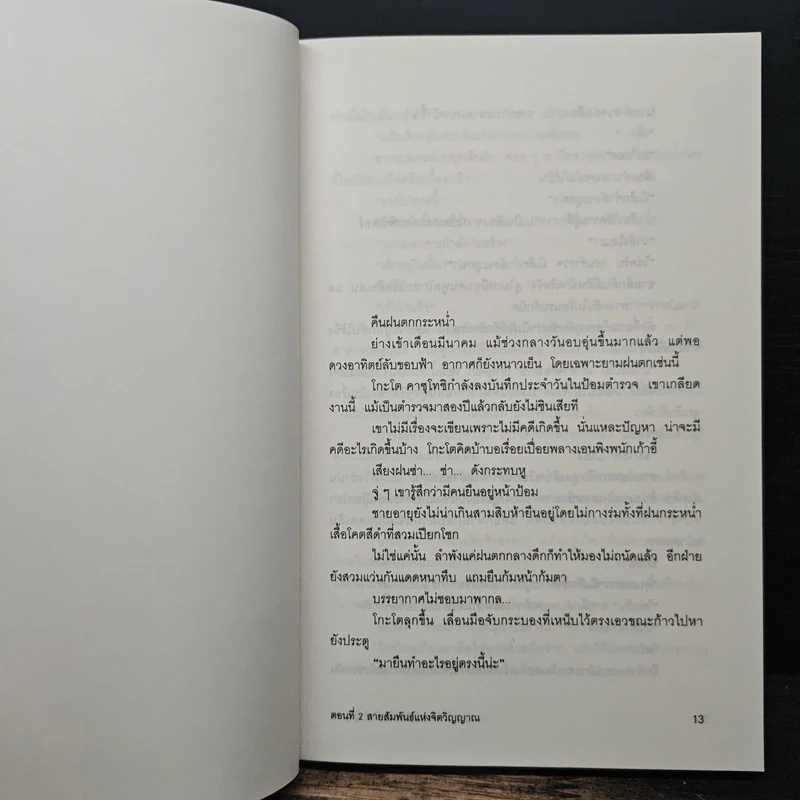 คืนฝนตกกระหน่ำ
ย่างเข้าเดือนมีนาคม แม้ช่วงกลางวันอบอุ่นขึ้นมากแล้ว แต่พอ
ดวงอาทิตย์ลับขอบฟ้า อากาศก็ยังหนาวเย็น โดยเฉพาะยามฝนตกเช่นนี้
โกะโต คาซุโทชิกำลังลงบันทึกประจำวันในป้อมตำรวจ เขาเกลียด
งานนี้ แม้เป็นตำรวจมาสองปีแล้วกลับยังไม่ชินเสียที
เขาไม่มีเรื่องจะเขียนเพราะไม่มีคดีเกิดขึ้น นั่นแหละปัญหา น่าจะมี
คดีอะไรเกิดขึ้นบ้าง โกะโตคิดบ้าบอเรื่อยเปื่อยพลางเอนพิงพนักเก้าอี้
เสียงฝนซ่า... ซ่า... ดังกระทบหู
จู่ ๆ เขารู้สึกว่ามีคนยืนอยู่หน้าป้อม
ชายอายุยังไม่น่าเกินสามสิบห้ายืนอยู่โดยไม่กางร่มทั้งที่ฝนกระหน่ำ
เสื้อโคตสีดำที่สวมเปียกโชก
ไม่ใช่แค่นั้น ลำพังแค่ฝนตกกลางดึกก็ทำให้มองไม่ถนัดแล้ว อีกฝ่าย
ยังสวมแว่นกันแดดหนาทึบ แถมยืนก้มหน้าก้มตา
บรรยากาศไม่ชอบมาพากล...
โกะโตลุกขึ้น เลื่อนมือจับกระบองที่เหน็บไว้ตรงเอวขณะก้าวไปหา
ยังประตู
"มายืนทำอะไรอยู่ตรงนี้น่ะ"
ตอนที่ 2 สายสัมพันธ์แห่งจิตวิญญาณ 13